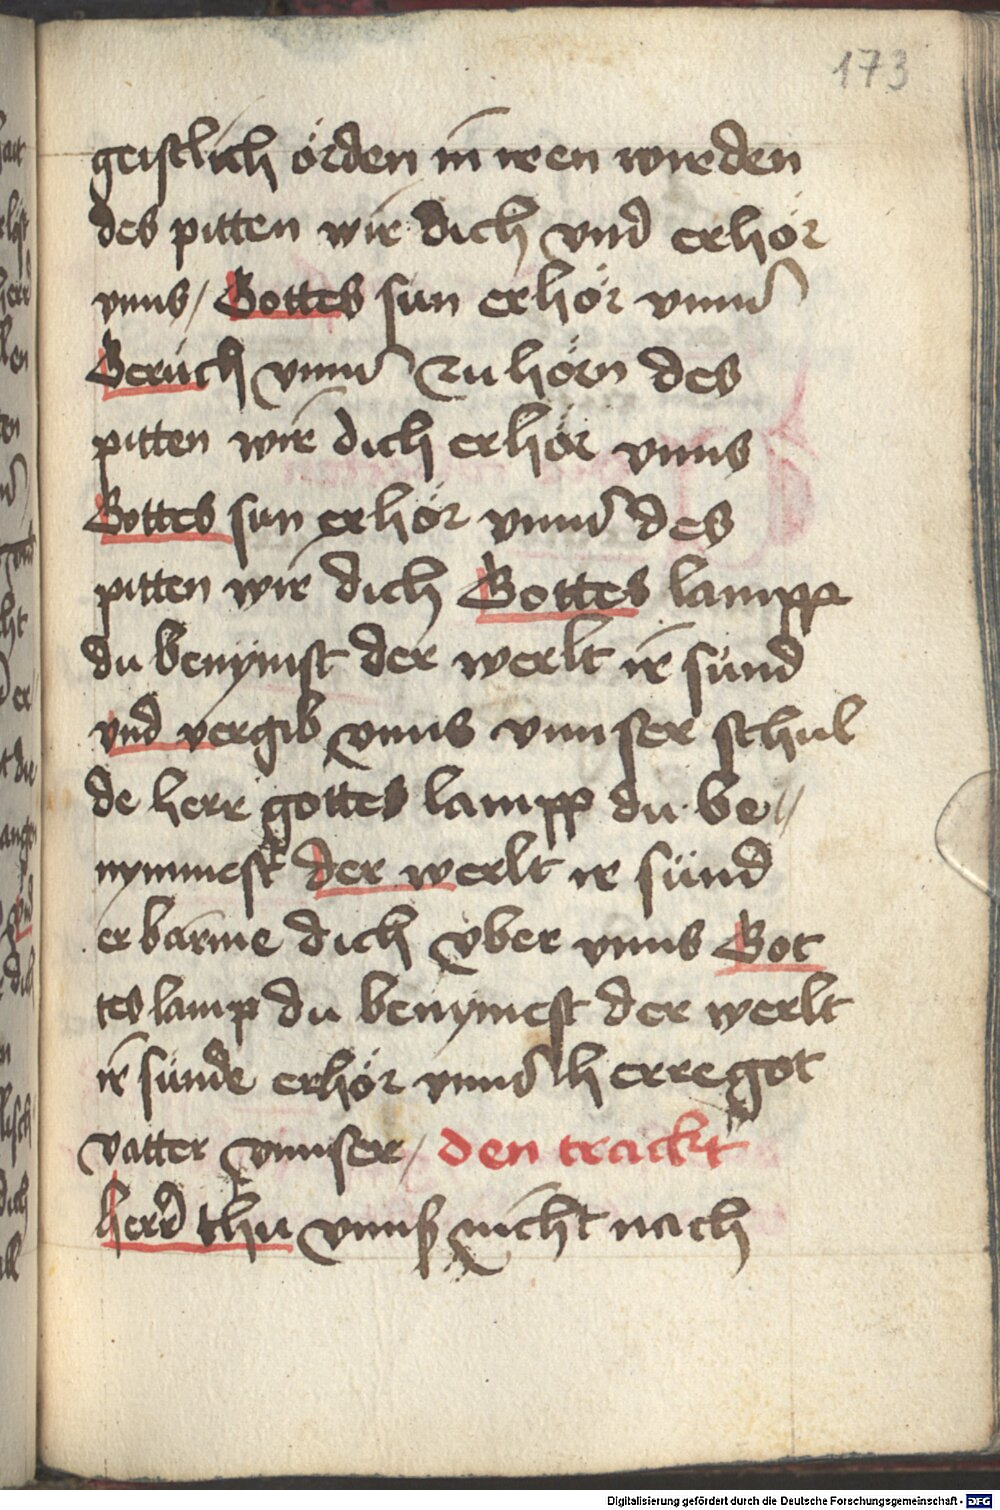 173
geistlich örden in iren wirden
des pitten wir dich vnd erhör
vnns / Gottes sun erhör vnns
Geruch vnns zu hörn des
pitten wir dich erhör vnns
Gottes sun erhör vnns des
pitten wir dich Gottes lampp
du benÿmst der werlt ir sünd
vnd vergib vnns vnnser schul
de herr gottes lampp du be//
nymmest der werlt ir sünd
erbarme dich vber vnns Got
tes lamp du benÿmest der werlt
ir sünde erhör vnns herre got
vatter vnnser / den trackt
herr thu vnnß nicht nach
Digitalisierung gefördert durch die Deutsche Forschungsgemeinschaft - DFG